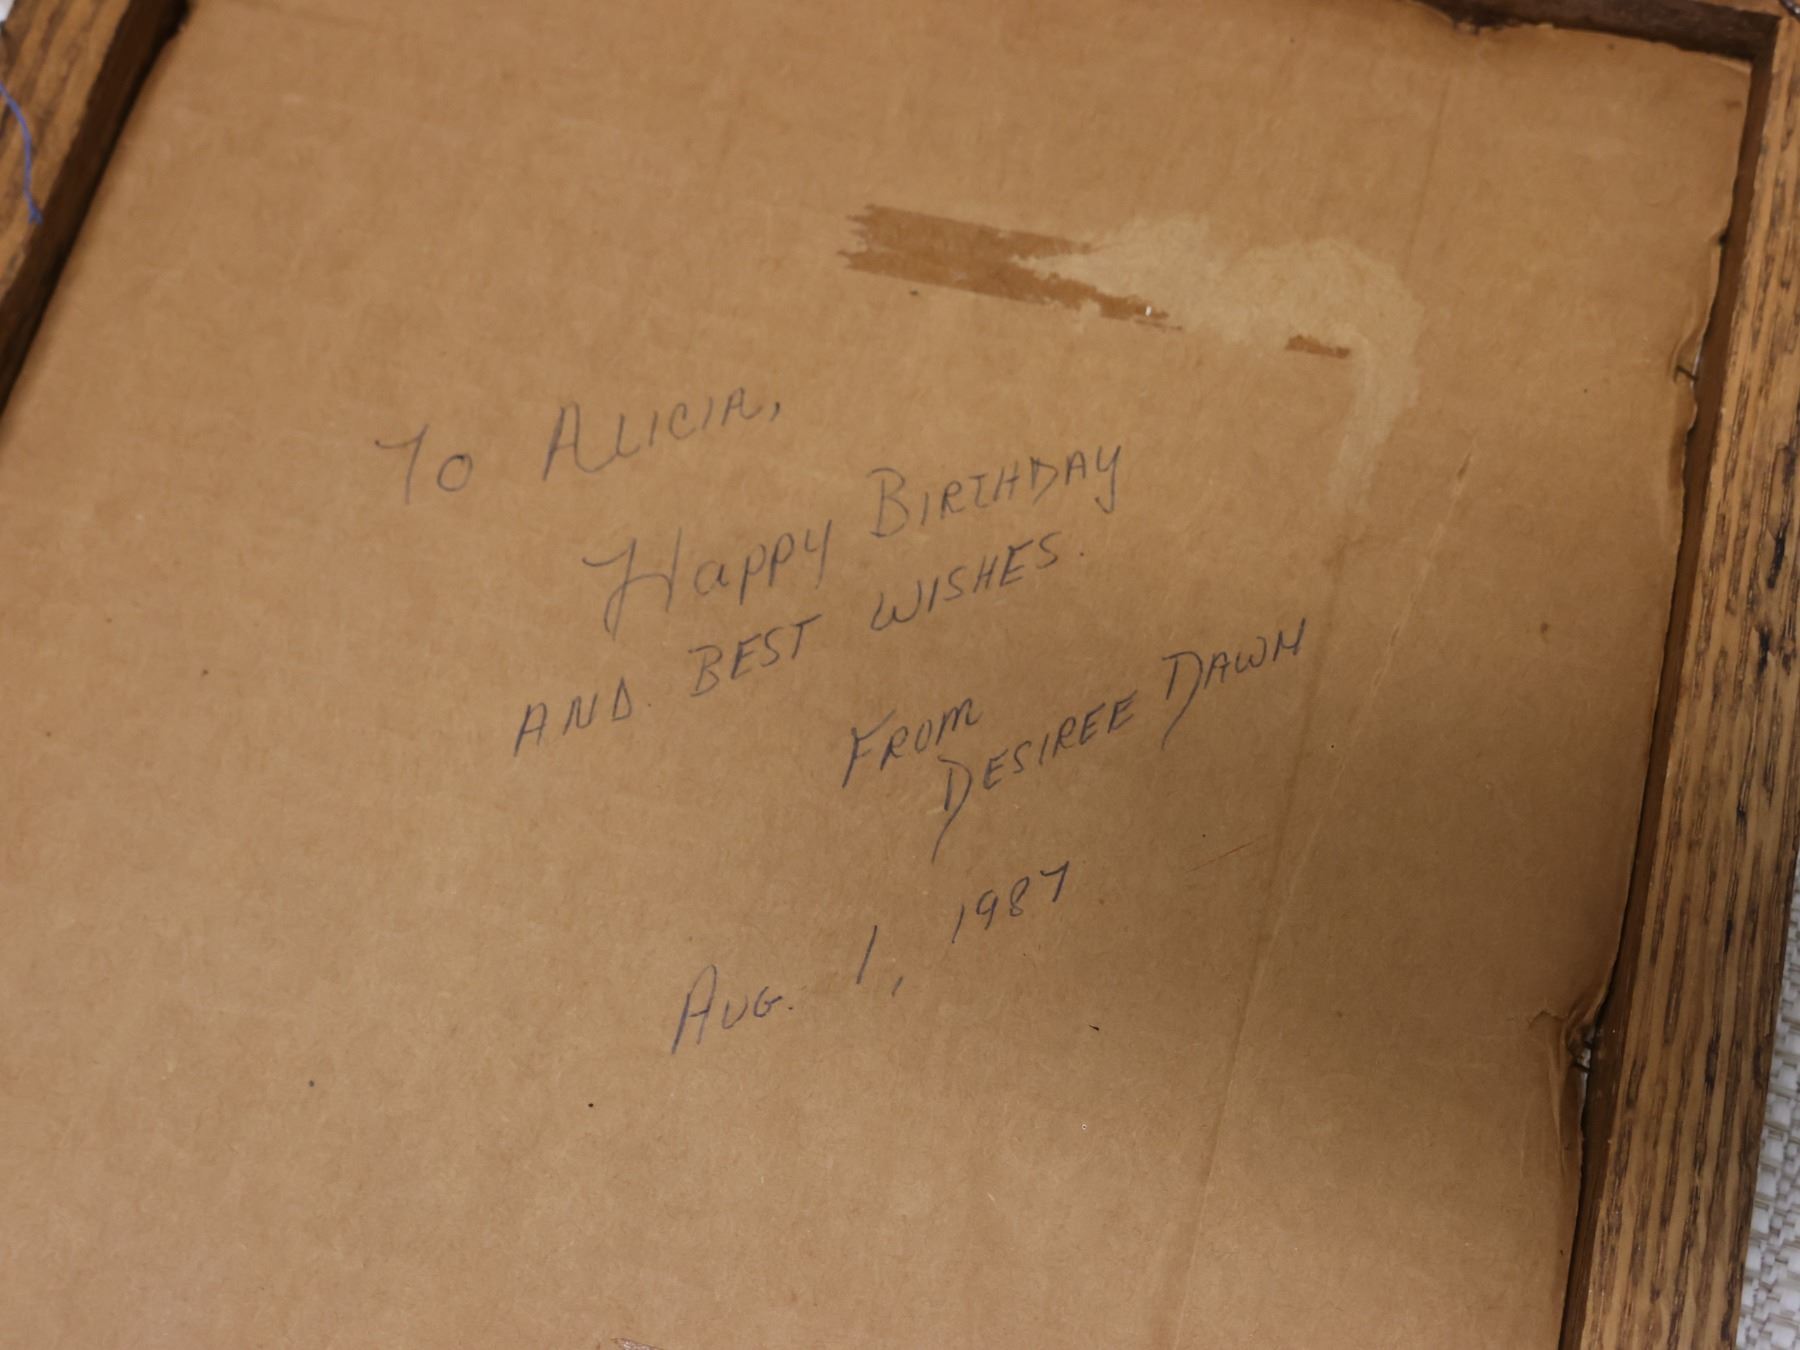 To Alicia,
Happy Birthday
and best wishes.
From
Desiree Dawn
Aug. 1, 1987